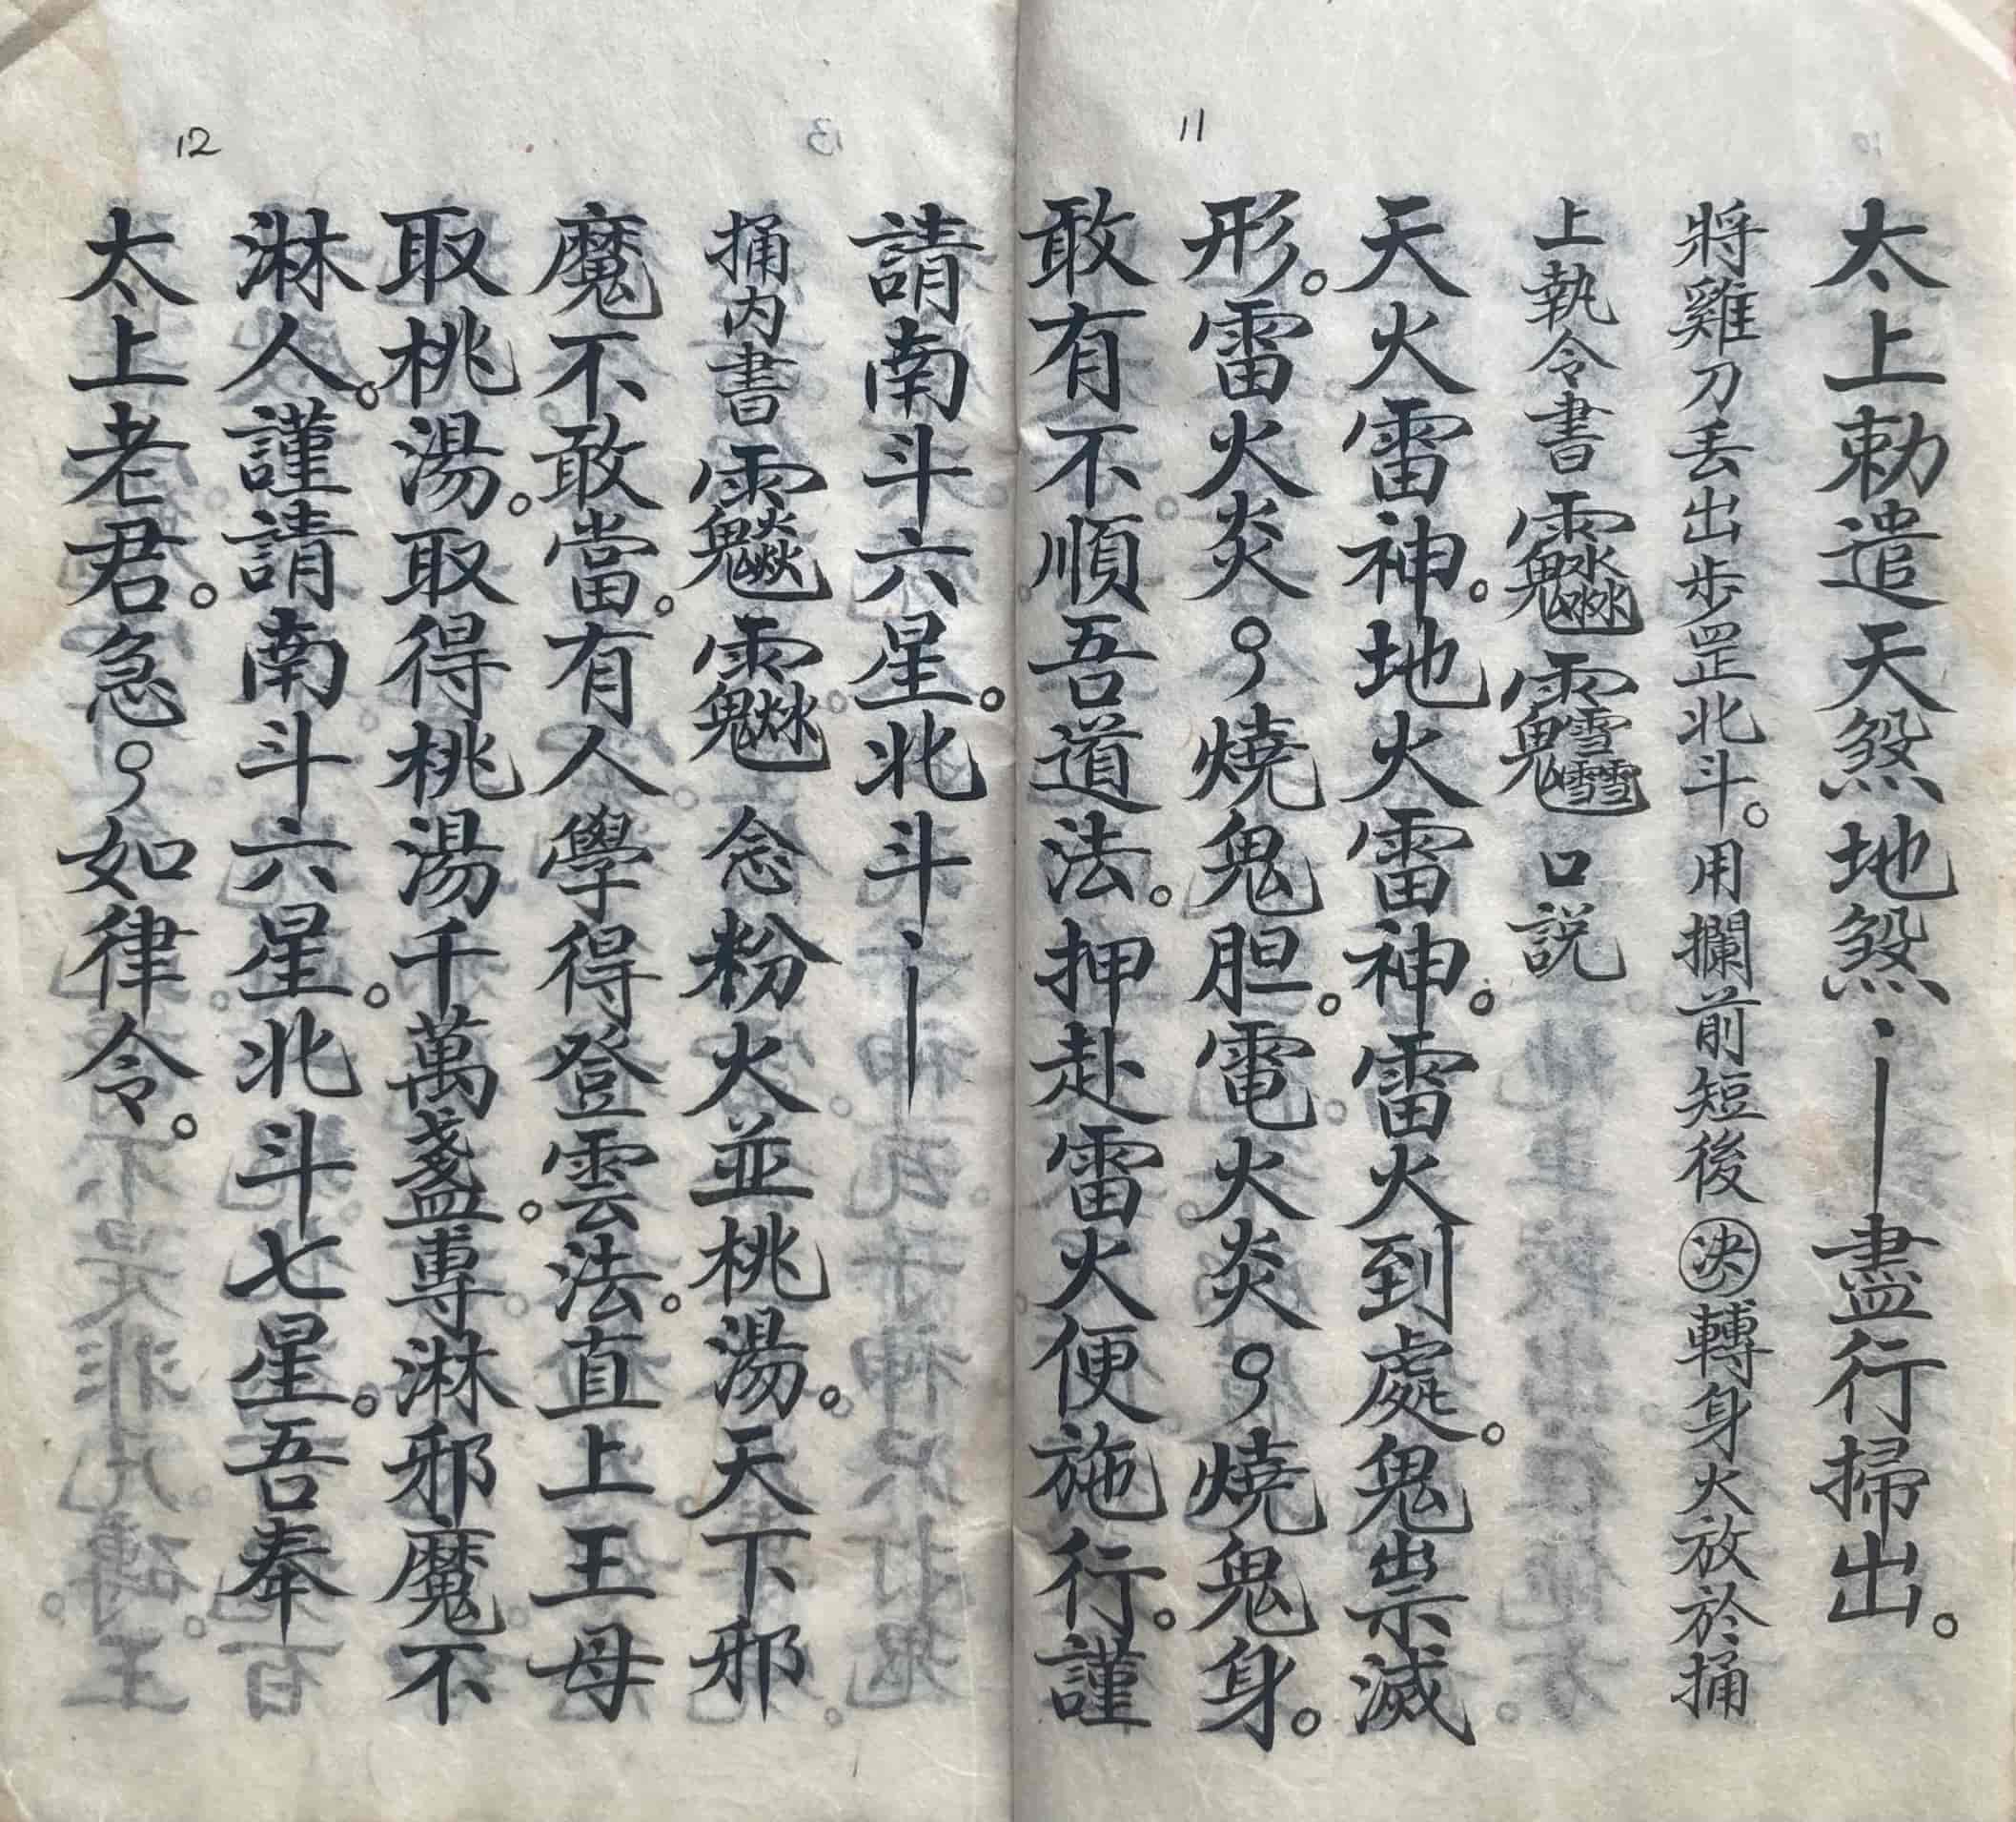 11
太上勅遣天煞地煞、｜盡行掃出。
將雞刀丟出步罡北斗。用攔前短後決轉身火放於捅
上執令書 口説
天火雷神。地火雷神。雷火到處。鬼祟滅
形。雷火炎〻燒鬼胆。電火炎〻燒鬼身。
敢有不順吾道法。押赴雷火便施行。謹
請南斗六星。北斗、｜
捅内書 念粉火並桃湯。天下邪
魔不敢當。有人學得登雲法。直上王母
取桃湯。取得桃湯千萬盞。專淋邪魔不
淋人。謹請南斗六星。北斗七星。吾奉
太上老君。急〻如律令。
12